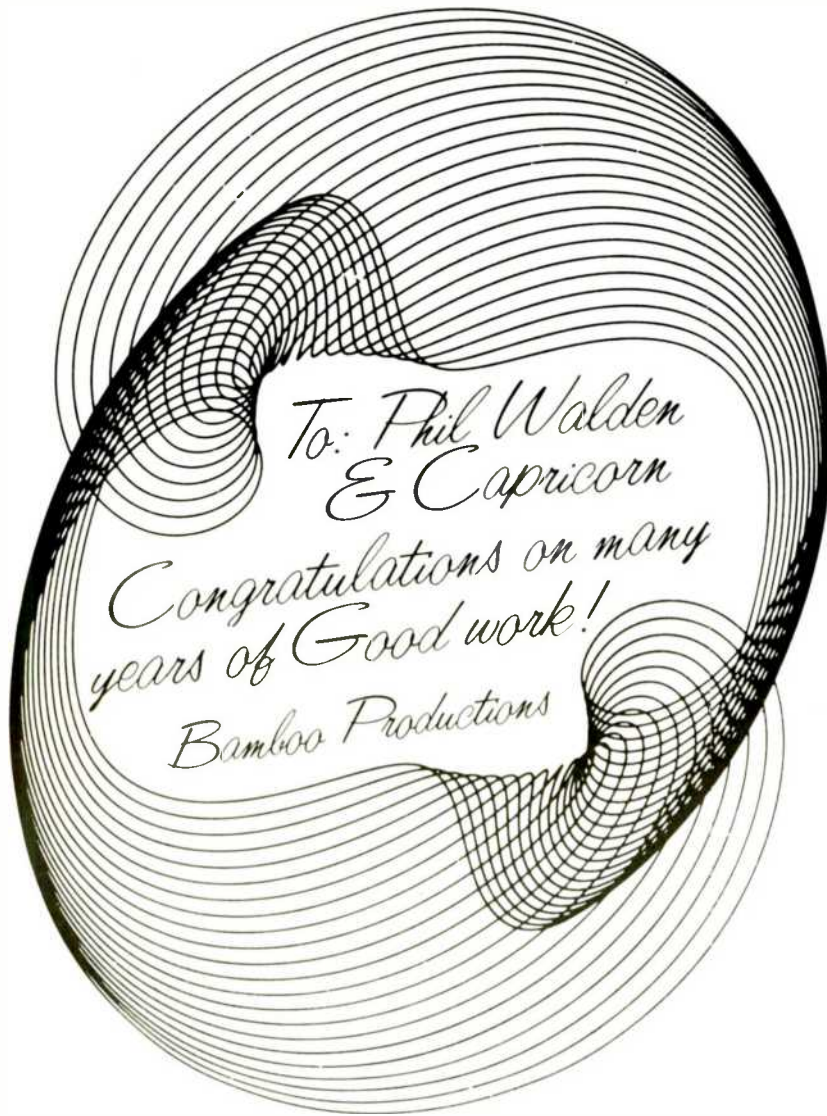 To: Phil Walden
& Capricorn
Congratulations on many
years of Good work!
Bamboo Productions